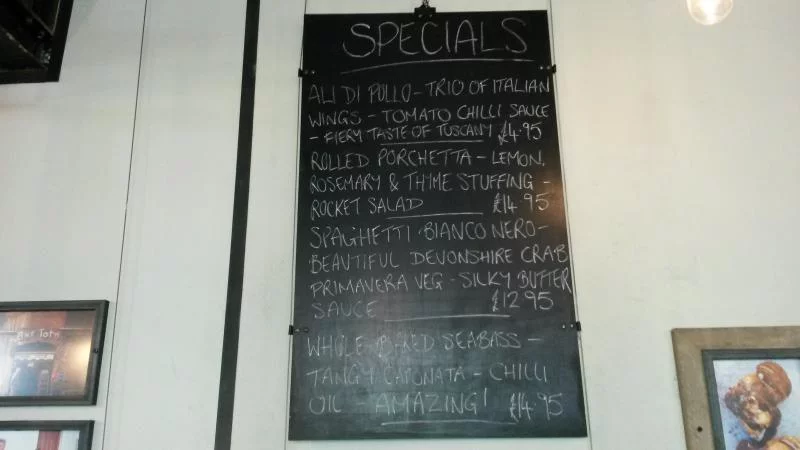 SPECIALS
ALI DI POLLO - TRIO OF ITALIAN
WINGS - TOMATO CHILLI SAUCE
- FIERY TASTE OF TUSCANY £4.95
ROLLED PORCHETTA - LEMON,
ROSEMARY & THYME STUFFING -
ROCKET SALAD £14.95
SPAGHETTI BIANCO NERO -
BEAUTIFUL DEVONSHIRE CRAB
PRIMAVERA VEG - SILKY BUTTER
SAUCE £12.95
WHOLE BAKED SEABASS -
TANGY CAPONATA - CHILLI
OIL - AMAZING! £14.95